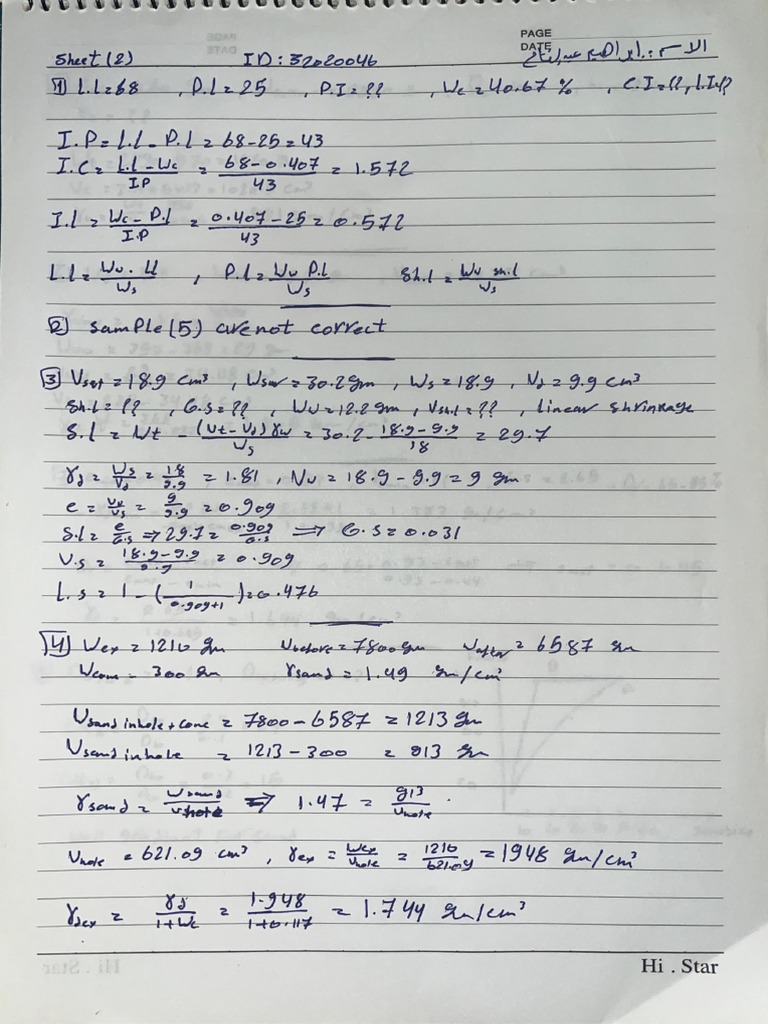 PAGE
DATE
Sheet (2) ID: 32020046 الاسم: ابراهيم
1 L.L = 68 , P.L = 25 , P.I = ?? , Wc = 40.67 % , C.I = ??, L.I = ?
I.P = L.L - P.L = 68 - 25 = 43
I.C = L.L - Wc / I.P = 68 - 0.407 / 43 = 1.572
I.L = Wc - P.L / I.P = 0.407 - 25 / 43 = 0.572
L.L = Ww . LL / Ws , P.L = Ww P.L / Ws Sh.L = Ww sh.L / Ws
2 Sample (5) are not correct
3 Vsat = 18.9 cm³ , Wsat = 30.2 gm , Ws = 18.9 , Vd = 9.9 cm³
Sh.L = ?? , G.s = ?? , Ww = 12.2 gm , Vsh.L = ?? , Linear shrinkage
S.L = Wt - (Vt - Vd) γw / Ws = 30.2 - 18.9 - 9.9 / 18 = 29.7
γd = Ws / Vd = 18 / 9.9 = 1.81 , Vv = 18.9 - 9.9 = 9 gm
e = Vv / Vs = 9 / 9.9 = 0.909
S.L = e / G.s ⇒ 29.7 = 0.909 / G.s ⇒ G.s = 0.031
V.s = 18.9 - 9.9 / 9.9 = 0.909
L.s = 1 - ( 1 / 0.909 + 1 ) = 0.476
4 Wex = 1210 gm Wbefore = 7800 gm Wafter = 6587 gm
Wcone = 300 gm γsand = 1.49 gm/cm³
Wsand in hole + cone = 7800 - 6587 = 1213 gm
Wsand in hole = 1213 - 300 = 913 gm
γsand = Wsand / Vhole ⇒ 1.47 = 913 / Vhole
Vhole = 621.09 cm³ , γex = Wex / Vhole = 1210 / 621.09 = 1948 gm/cm³
γdex = γd / 1 + Wc = 1.948 / 1 + 0.117 = 1.744 gm/cm³
Hi . Star